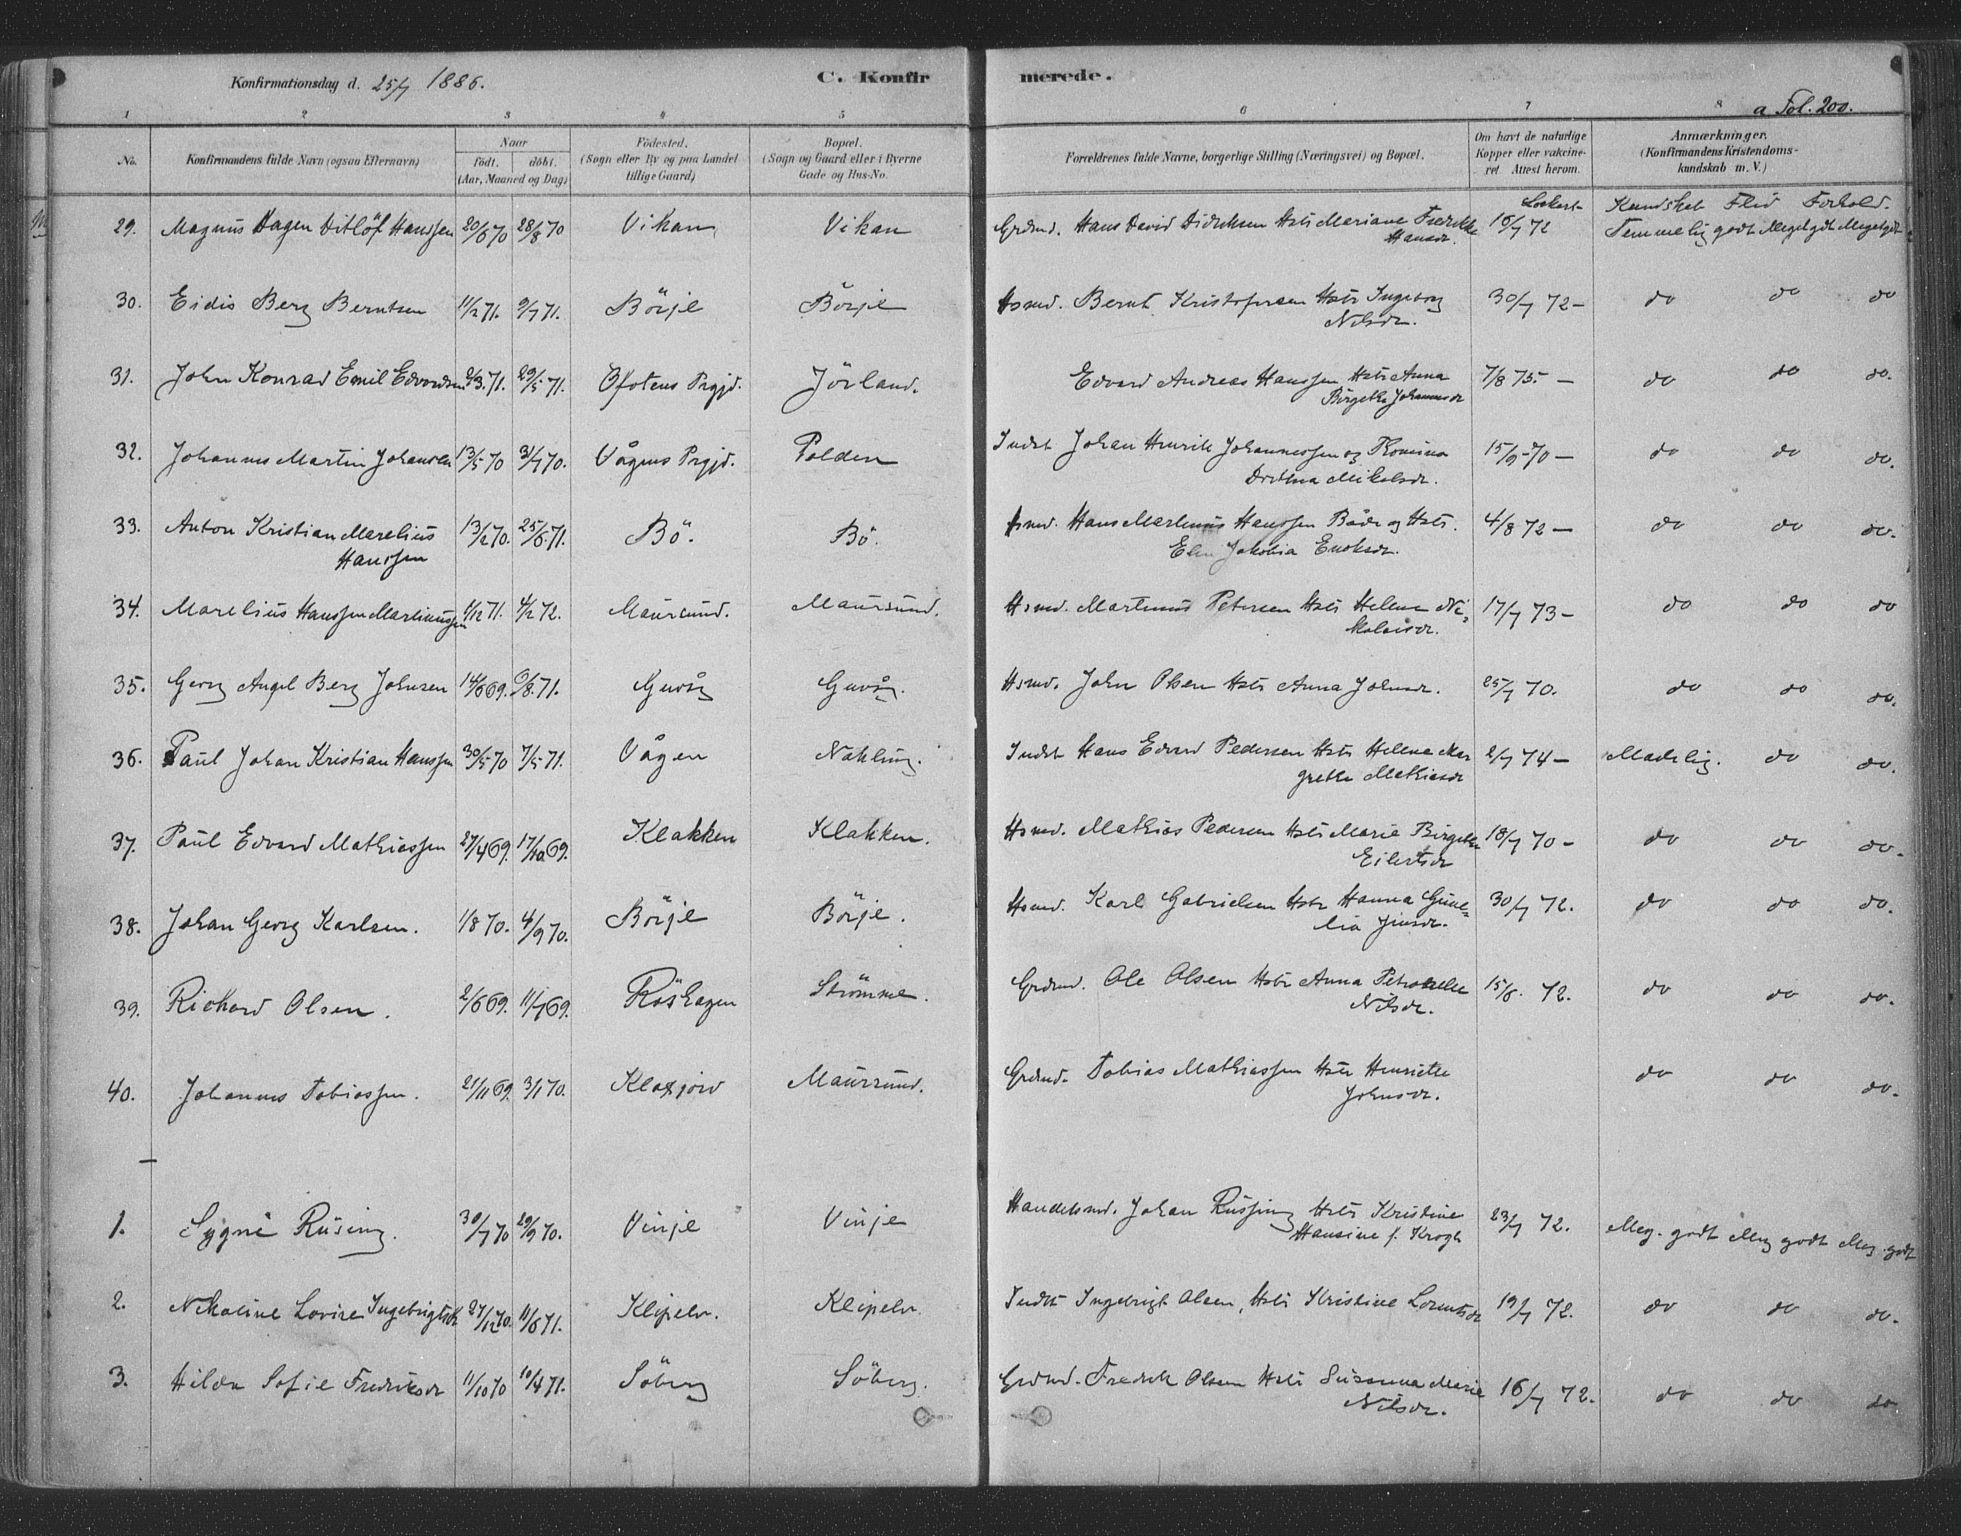 Konfirmationsdag d. 25/7 1886. C. Konfirmerede.
a Fol. 200.
1 2 3 4 5 6 7 8
No. Konfirmandens fulde Navn (ogsaa Efternavn) Naar født. døbt. (Aar, Maaned og Dag) Fødested. (Sogn eller By og paa Landet tillige Gaard) Bopæl. (Sogn og Gaard eller i Byerne Gade og Hus-No. Forældrenes fulde Navne, borgerlige Stilling (Næringsvei) og Bopæl. Om havt de naturlige Kopper eller vakcineret Attest herom. Anmærkninger. (Konfirmandens Kristendomskundskab m. V.)
Kundskab Flid Forhold.
29. Magnus Hagen Ditløf Hanssen 20/6 70 28/8 70 Vikan Vikan Grdmd. Hans David Didriksen Hstr Mariane Fredrikke Hansdr. 16/7 72 Temmelig godt Meget godt Meget godt
30. Eidis Berg Berntsen 11/2 71. 9/7 71. Börje Börje Hsmd. Bernt Kristofersen Hstr Ingeborg Nilsdr. 30/7 72 – do do do
31. John Konrad Emil Edvardsen 2/3 71. 29/5 71. Ofotens Prgjd. Jövland. Edvard Andreas Hanssen Hstr Anna Birgethe Johannesdr 7/8 75. – do do do.
32. Johannes Martin Johansen 13/5 70 31/7 70. Vågens Prgjd. Polden Indst Johan Henrik Johannessen og Romina Dorthea Mikalsdr. 15/9 70 – do do do.
33. Anton Kristian Marelius Hanssen 13/12 70. 25/6 71. Bö. Bö. Hsmd. Hans Martinus Hanssen Både og Hstr. Elen Jakobia Enoksdr. 4/8 72 – do do do.
34. Marelius Hanssen Martinussen 1/12 71. 4/2 72. Maursund. Maursund. Hsmd. Martinus Petersen Hstr Helene Nikolaisdr. 17/7 73 – do do do
35. Georg Angel Berg Johnsen 14/6 69. 6/8 71. Guvåg Guvåg. Hsmd. John Olsen Hstr Anna Johnsdr. 25/7 70. do do do.
36. Paul Johan Kristian Hanssen 30/5 70 7/5 71. Vågen Nykling. Indst Hans Edvard Pedersen Hstr Helene Margrethe Mathiasdr 2/7 74 – Madelig. do do.
37. Paul Edvard Mathiassen 27/4 69. 17/10 69. Klakken Klakken. Hsmd. Mathias Pedersen Hstr Marie Birgethe Eilertsdr 18/7 70 – do do do.
38. Johan Georg Karlsen. 1/8 70. 4/9 70. Börje Börje. Hsmd. Karl Gabrielsen Hstr Hanna Gunelia Jensdr. 30/7 72. do do do.
39. Rikhard Olsen. 2/6 69. 11/7 69. Röshagen Strömme. Grdmd. Ole Olsen Hstr Anna Petronelle Nilsdr. 15/8. 72. do do do.
40. Johannes Tobiassen. 21/11 69. 3/1 70. Klaksjord Maursund. Grdmd. Tobias Mathiassen Hstr Henriette Johnsdr. do do do.
1. Sygni Rusing. 30/7 70 29/9 70. Vinje Vinje Handelsmd. Johan Russing Hstr Kristine Hansine f. Krogh 23/7 72. Meg. godt Meg godt Meg. godt
2. Nikoline Lovise Ingebrigtsdr 27/12 70. 11/6 71. Klipelv. Klipelv. Indst Ingebrigt Olsen, Hstr Kristine Lorentsdr 19/7 72. do do do.
3. Hilda Sofie Fredriksdr 11/10 70 10/4 71. Söberg Söberg. Grdmd. Fredrik Olsen Hstr Susanna Marie Nilsdr. 16/7 72. do do do